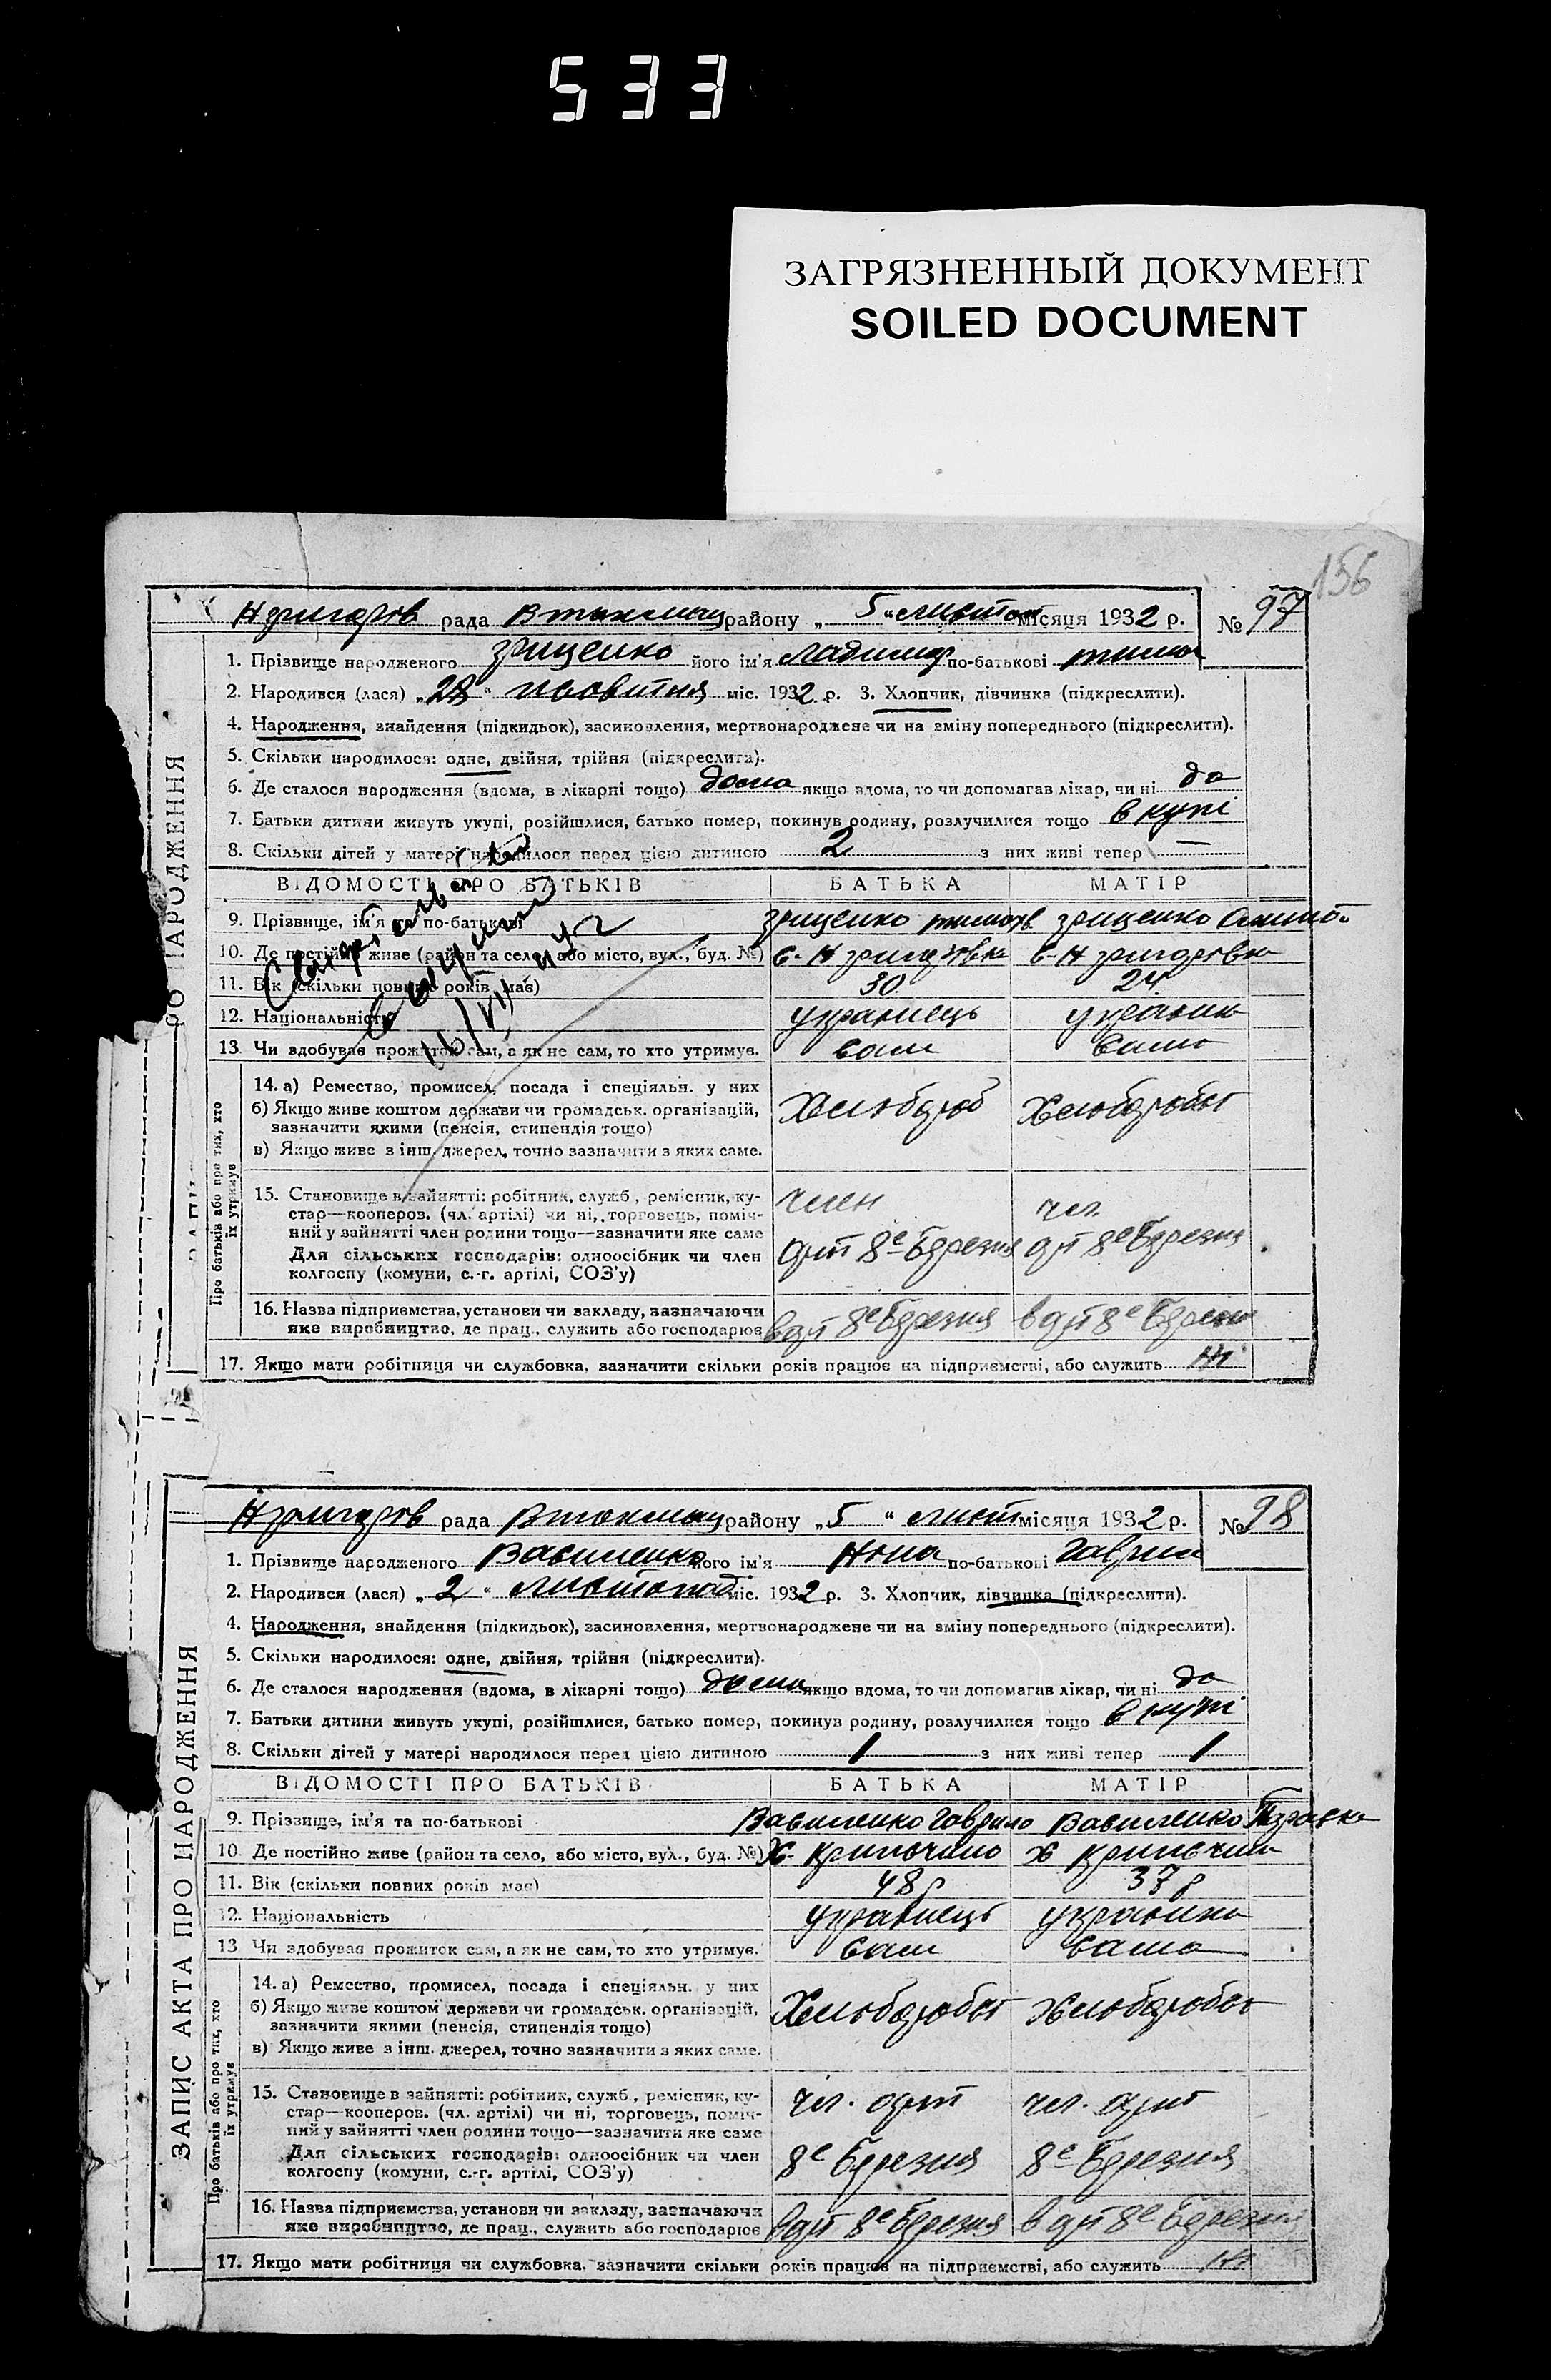 533
ЗАГРЯЗНЕННЫЙ ДОКУМЕНТ
SOILED DOCUMENT
156
Нгригоров рада Втокмац району „ 5 “ листоп місяця 1932 р. № 97
1. Прізвище народженого Гриценко його ім'я Владимир по-батькові тимох
2. Народився (лася) „ 28 “ жовтня міс. 1932 р. 3. Хлопчик, дівчинка (підкреслити).
4. Народження, знайдення (підкидьок), засиновлення, мертвонароджене чи на зміну попереднього (підкреслити).
5. Скільки народилося: одне, двійня, трійня (підкреслити).
6. Де сталося народження (вдома, в лікарні тощо) дома якщо вдома, то чи допомагав лікар, чи ні да
7. Батьки дитини живуть укупі, розійшлися, батько помер, покинув родину, розлучилися тощо вкупі
8. Скільки дітей у матері народилося перед цією дитиною 2 з них живі тепер —
ВІДОМОСТІ ПРО БАТЬКІВ БАТЬКА МАТІР
9. Прізвище, ім'я та по-батькові Гриценко тимохв Гриценко
10. Де постійно живе (район та село, або місто, вул., буд. №) с. Н григоровка с. Н григоровка
11. Вік (скільки повних років має) 30 24
12. Національність українець українка
13. Чи здобував прожиток сам, а як не сам, то хто утримує. сам сама
Про батьків або про тих, хто їх утримує
14. а) Ремество, промисел, посада і спеціяльн. у них
б) Якщо живе коштом держави чи громадськ. організацій, Хлібороб Хлібороб
зазначити якими (пенсія, стипендія тощо)
в) Якщо живе з інш. джерел, точно зазначити з яких саме.
15. Становище в зайнятті: робітник, служб., ремісник, ку- член чл.
стар—кооперов. (чл. артілі) чи ні, торговець, поміч-
ний у зайнятті член родини тощо—зазначити яке саме
Для сільських господарів: одноосібник чи член арт 8е березня арт 8е березня
колгоспу (комуни, с.-г. артілі, СОЗ'у)
16. Назва підприємства, установи чи закладу, зазначаючи
яке виробництво, де прац., служить або господарює в арт 8е березня в арт 8е березня
17. Якщо мати робітниця чи службовка, зазначити скільки років працює на підприємстві, або служить ні
ЗАПИС АКТА ПРО НАРОДЖЕННЯ
Нгригоров рада Втокмац району „ 5 “ лист місяця 1932 р. № 98
1. Прізвище народженого Василенко його ім'я Нона по-батькові Гаврил
2. Народився (лася) „ 2 “ листопад міс. 1932 р. 3. Хлопчик, дівчинка (підкреслити).
4. Народження, знайдення (підкидьок), засиновлення, мертвонароджене чи на зміну попереднього (підкреслити).
5. Скільки народилося: одне, двійня, трійня (підкреслити).
6. Де сталося народження (вдома, в лікарні тощо) дома якщо вдома, то чи допомагав лікар, чи ні да
7. Батьки дитини живуть укупі, розійшлися, батько помер, покинув родину, розлучилися тощо вкупі
8. Скільки дітей у матері народилося перед цією дитиною 1 з них живі тепер 1
ВІДОМОСТІ ПРО БАТЬКІВ БАТЬКА МАТІР
9. Прізвище, ім'я та по-батькові Василенко Гаврило Василенко
10. Де постійно живе (район та село, або місто, вул., буд. №) х. х
11. Вік (скільки повних років має) 48 р 37 р
12. Національність українець українка
13. Чи здобував прожиток сам, а як не сам, то хто утримує. сам сама
Про батьків або про тих, хто їх утримує
14. а) Ремество, промисел, посада і спеціяльн. у них
б) Якщо живе коштом держави чи громадськ. організацій, Хлібороб Хлібороб
зазначити якими (пенсія, стипендія тощо)
в) Якщо живе з інш. джерел, точно зазначити з яких саме.
15. Становище в зайнятті: робітник, служб., ремісник, ку- чл. арт чл. арт
стар—кооперов. (чл. артілі) чи ні, торговець, поміч-
ний у зайнятті член родини тощо—зазначити яке саме
Для сільських господарів: одноосібник чи член 8е березня 8е березня
колгоспу (комуни, с.-г. артілі, СОЗ'у)
16. Назва підприємства, установи чи закладу, зазначаючи
яке виробництво, де прац., служить або господарює в арт 8е березня в арт 8е березня
17. Якщо мати робітниця чи службовка, зазначити скільки років працює на підприємстві, або служить ні